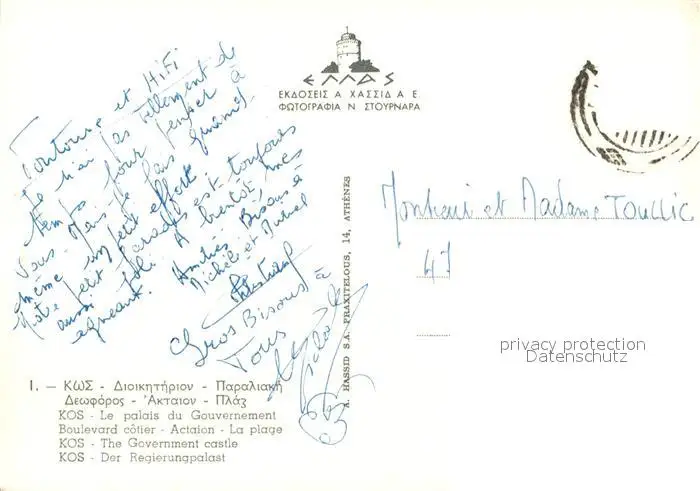 Toutoune et HiFi
Je n'ai pas tellement de
temps pour penser à
vous. Mais je fais quand
même un petit effort
Notre petit paradis est toujours
aussi joli. A bientôt mes
agneaux. Amitiés. Bisous à
Michèle et
Gros Bisous à
Tous
ΕΛΛΑΣ
ΕΚΔΟΣΕΙΣ Α ΧΑΣΣΙΔ Α Ε
ΦΩΤΟΓΡΑΦΙΑ Ν ΣΤΟΥΡΝΑΡΑ
A. HASSID S.A. PRAXITELOUS, 14, ATHÈNES
et Madame TOULLIC
47
privacy protection
Datenschutz
1. — ΚΩΣ - Διοικητήριον - Παραλιακή
Δεωφόρος - Ἀκταιον - Πλάζ
KOS - Le palais du Gouvernement
Boulevard côtier - Actaion - La plage
KOS - The Government castle
KOS - Der Regierungpalast